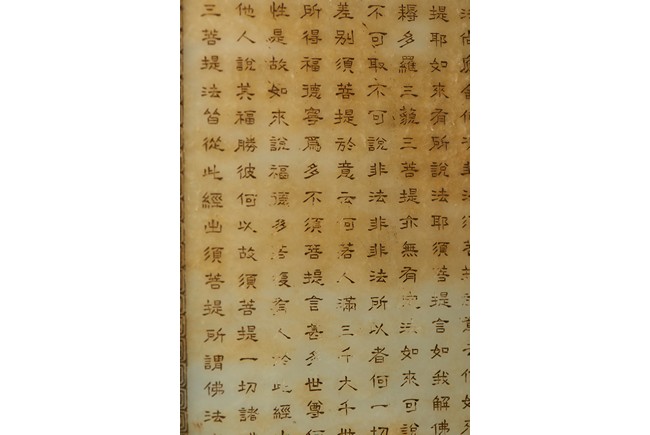 法尚應舍何況非法須菩提於意云何如來
提耶如來有所說法耶須菩提言如我解佛
耨多羅三藐三菩提亦無有定法如來可說
不可取不可說非法非非法所以者何一切
差別須菩提於意云何若人滿三千大千世
所得福德寧爲多不須菩提言甚多世尊何
性是故如來說福德多若復有人於此經
他人說其福勝彼何以故須菩提一切諸
三菩提法皆從此經出須菩提所謂佛法